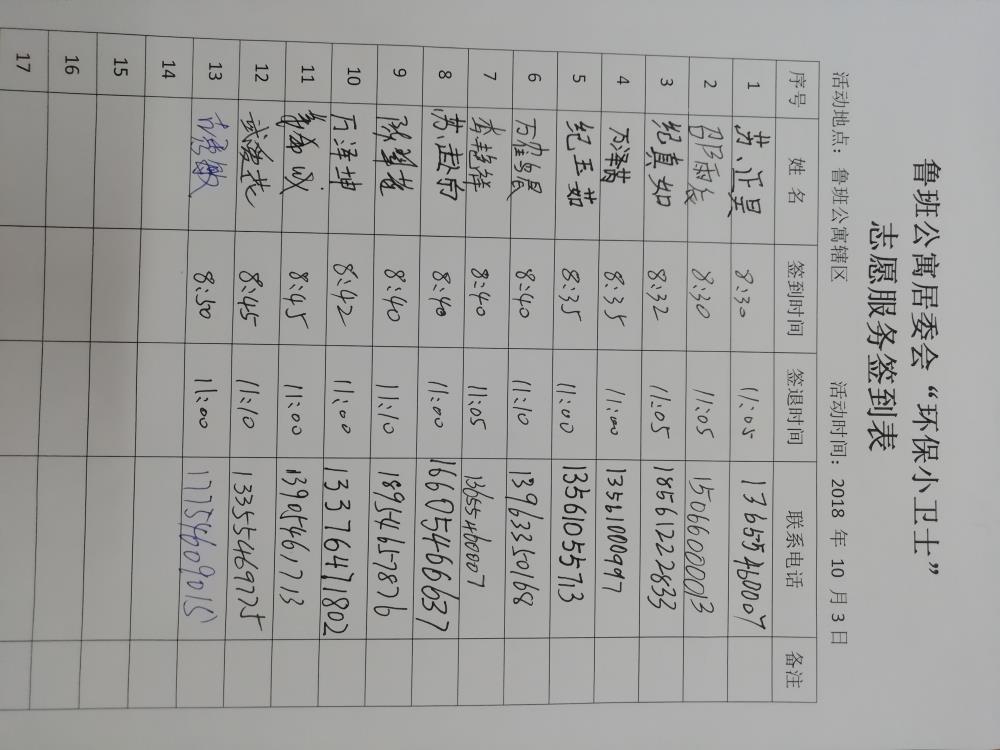 鲁班公寓居委会“环保小卫士”
志愿服务签到表
活动地点：鲁班公寓辖区 活动时间：2018 年 10 月 3 日
序号 姓名 签到时间 签退时间 联系电话 备注
1 苏正昊 8:30 11:05 13655460007
2 8:30 11:05 15066000013
3 纪真如 8:32 11:05 18561222833
4 万泽芮 8:35 11:00 13561000997
5 纪玉茹 8:35 11:00 13561055713
6 8:40 11:10 13963350168
7 李艳锋 8:40 11:05 13655460007
8 8:40 11:00 16605466637
9 8:40 11:10 18954657876
10 万泽坤 8:42 11:00 13376471802
11 8:45 11:00 13905461713
12 武爱花 8:45 11:10 13355469775
13 8:50 11:00 17754609015
14
15
16
17